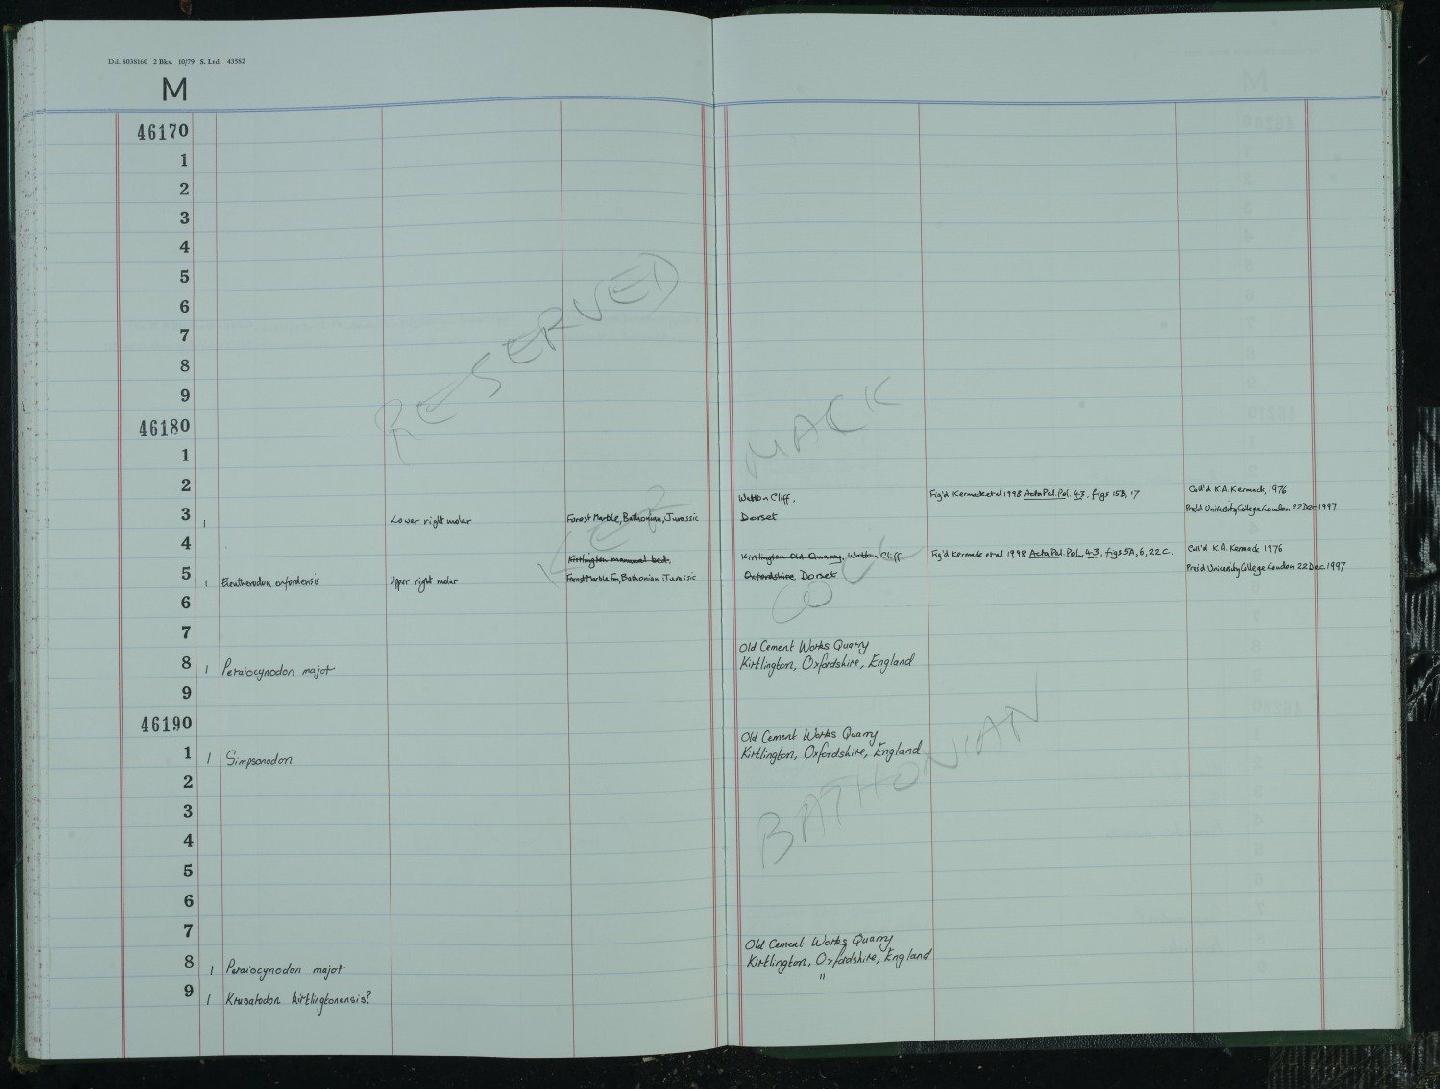 Dd. 8038160 2 Bks. 10/79 S. Ltd 43582
M
46170
1
2
3
4
5
6
7
8
9
46180
1
2
Watton Cliff, Fig'd Kermack et al 1998 Acta Pal. Pol. 43, figs 15B, 17 Coll'd K.A. Kermack, 1976
3 1 Lower right molar Forest Marble, Bathonian, Jurassic Dorset Pres'd University College London 22 Dec 1997
4
Kirtlington mammal bed, Kirtlington Old Quarry, Watton Cliff Fig'd Kermack et al 1998 Acta Pal. Pol. 43, figs 5A, 6, 22C. Coll'd K.A. Kermack 1976
5 1 Eleutherodon oxfordensis Upper right molar Forest Marble Fm, Bathonian, Jurassic Oxfordshire Dorset Pres'd University College London 22 Dec 1997
6
7
Old Cement Works Quarry
8 1 Peraiocynodon major Kirtlington, Oxfordshire, England
9
46190
Old Cement Works Quarry
1 1 Simpsonodon Kirtlington, Oxfordshire, England
2
3
4
5
6
7
Old Cement Works Quarry
8 1 Peraiocynodon major Kirtlington, Oxfordshire, England
9 1 Krusatodon kirtlingtonensis? "
RESERVED
KER MACK
COLL
BATHONIAN